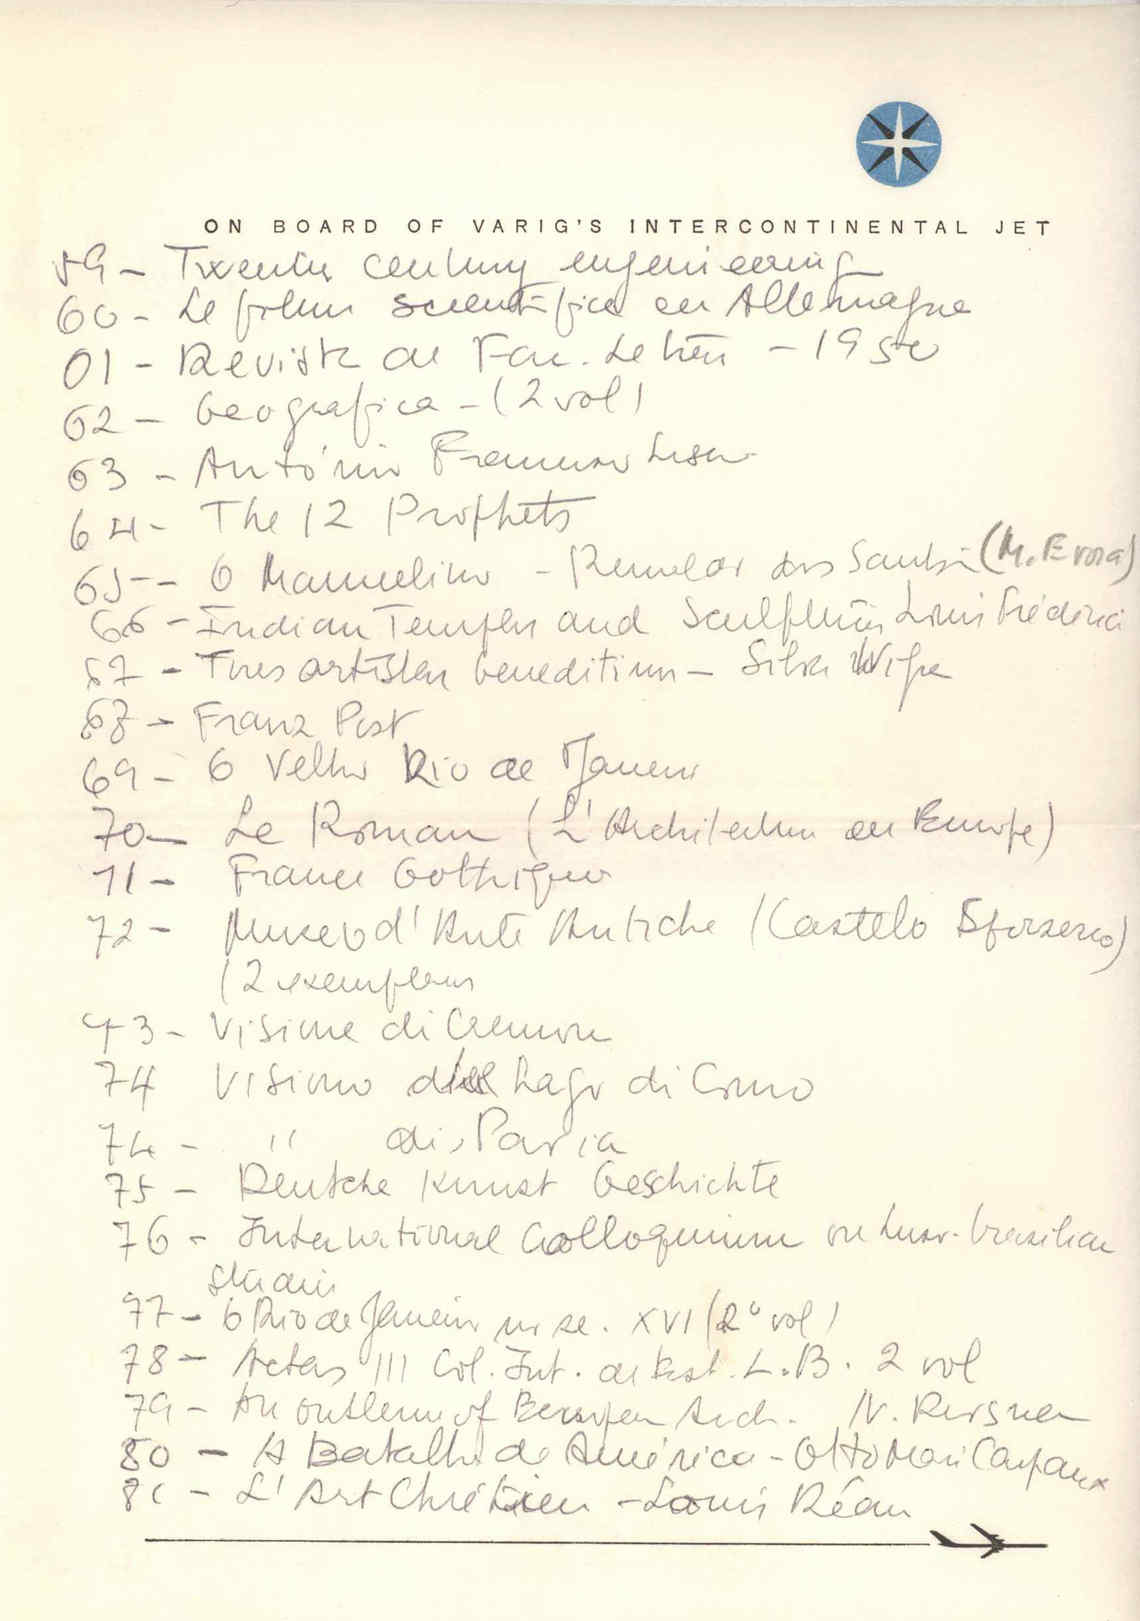 ON BOARD OF VARIG'S INTERCONTINENTAL JET
59 - Twentin century engineering
60 - Le film scientifica en Allemagne
61 - Revista de Fac. Letras - 1950
62 - Geografica - (2 vol)
63 - António Francisco Lisboa
64 - The 12 Prophets
65 - O Manuelino - Reinaldo dos Santos (M. Evora)
66 - Indian Temples and Sculptures Louis Frédéric
67 - Tres artistas beneditinos - Silva Nigra
68 - Franz Post
69 - O Velho Rio de Janeiro
70 - Le Roman (L'Architecture en Europe)
71 - France Gothique
72 - Museo d'Arte Antiche (Castelo Sforzesco)
(2 exemplares
73 - Visione di Cremona
74 Visiono Lago di Como
74 - " di Pavia
75 - Deutche Kunst Geschichte
76 - International Colloquium on Luso-brasilian
studies
77 - O Rio de Janeiro no se. XVI (2º vol)
78 - Actas III Col. Int. de Est. L.B. 2 vol
79 - An outline of European Arch. N. Pevsner
80 - A Batalha de América - Otto Maria Carpaux
81 - L'Art Chrétien - Louis Réau